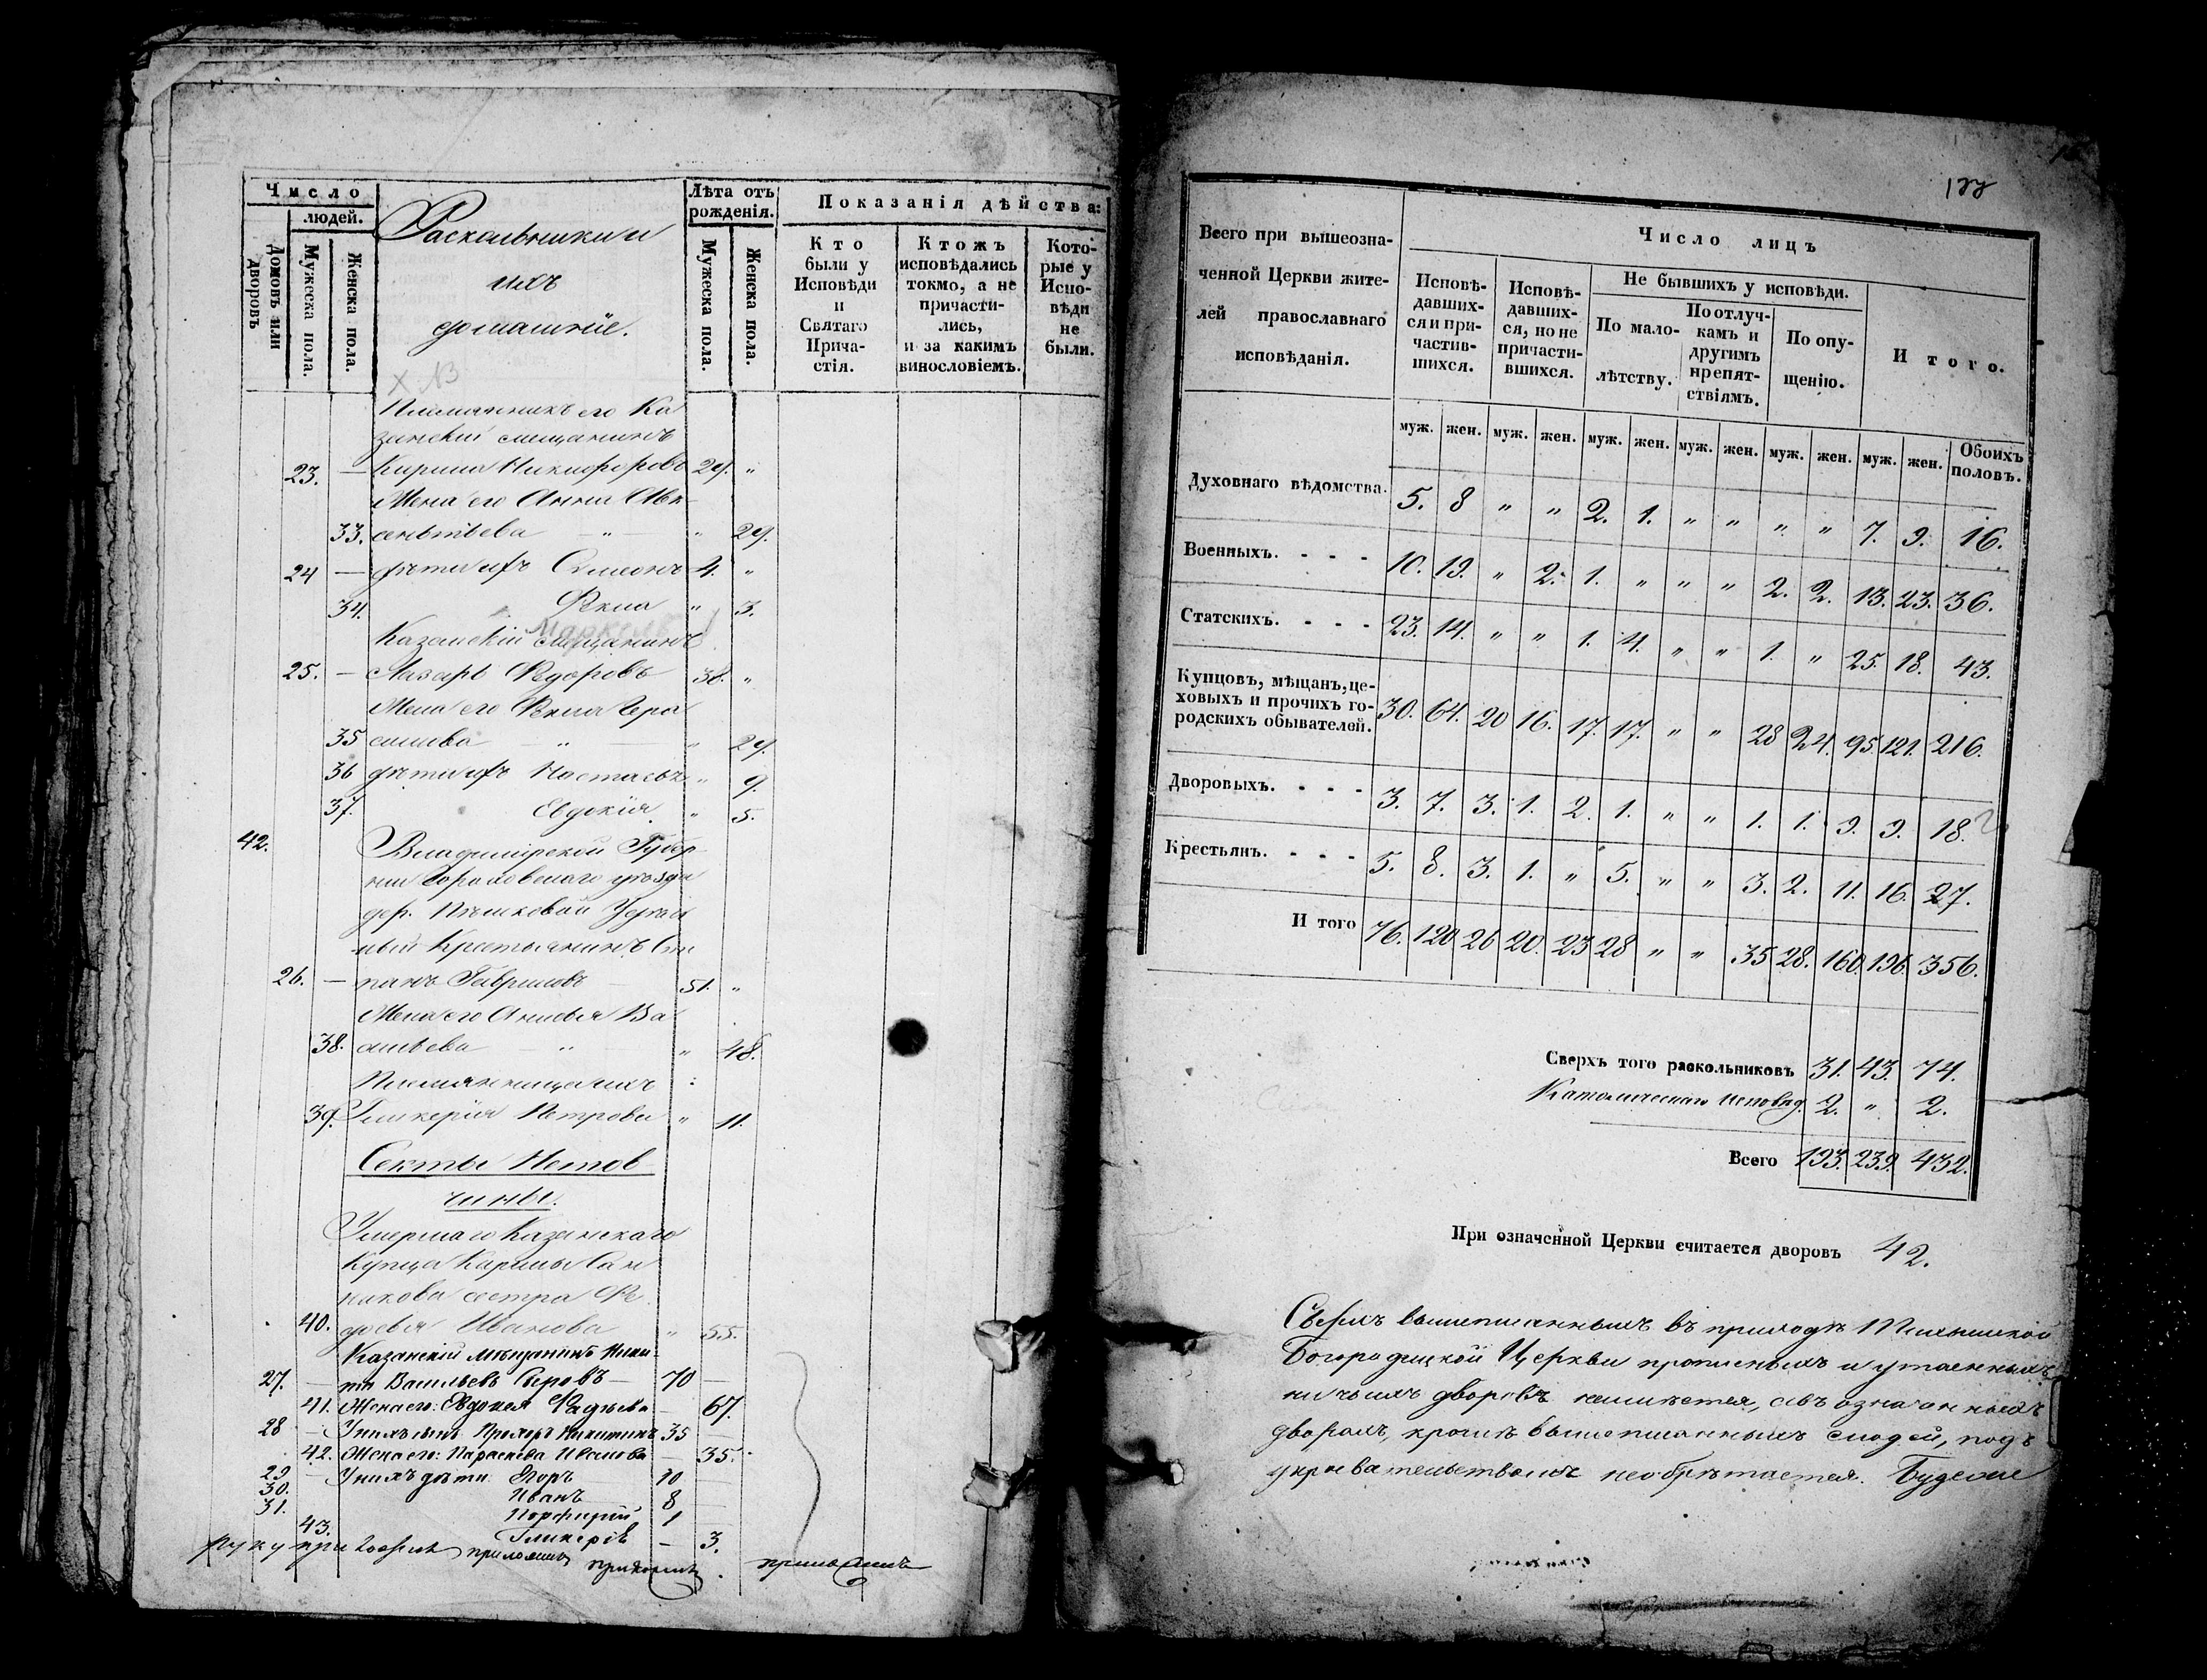 Число
людей.
Домовъ или дворовъ
Мужеска пола.
Женска пола.
Раскольники и
ихъ
домашніе.
Лѣта отъ рожденія.
Мужеска пола.
Женска пола.
Показанія дѣйства:
Кто были у Исповѣди и Святаго Причастія.
Ктожъ исповѣдались токмо, а не причастились, и за какимъ винословіемъ.
Которые у Исповѣди не были.
Племянникъ его Ка
занскій мещанинъ
23. — Кирила Никифоровъ 29. „
Жена его Анна Авк
33. сентьева — „ — „ 29.
24 — дѣти ихъ Симеонъ 4. „
34. Ѳекла „ 3.
Казанскій мещанинъ
25. — Лазарь Ѳедоровъ 38. „
Жена его Ѳекла Гера
35 симова — „ — „ 29.
36 дѣти ихъ Настасья „ 9.
37. Евдокія „ 5.
42. Владимірской Губер
ніи Гороховскаго уезда
дер. Пѣшковой Удѣль
ный Крестьянинъ Сте
26. — панъ Гавриловъ 51. „
Жена его Анисья Ва
38. сильева — „ „ 48.
Племянница ихъ
39. Гликерія Петрова „ 11.
Секты Нетов
щины.
Умершаго Казанскаго
Купца Карпа Сан
никова сестра Ѳе
40. досья Иванова „ 55.
Казанскій мѣщанинъ Ники-
27. — та Васильевъ Сыровъ — 70 —
41. Жена его: Евдокея Фадѣева — 67.
28 — У нихъ сынъ Прохоръ Никитинъ 35 —
42. Жена его: Параскева Иванова — 35.
29 — У нихъ дѣти: Егоръ 10
30. Иванъ 8 —
31. Порфирій 1 —
43. Гликерія — 3.
Руку приложилъ
Всего при вышеозна-
ченной Церкви жите-
лей православнаго
исповѣданія.
Число лицъ
Исповѣ-давших-ся и при-частив-шихся.
Исповѣ-давших-ся, но не причасти-вшихся.
Не бывшихъ у исповѣди.
По мало-лѣтству.
По отлуч-камъ и другимъ препят-ствіямъ.
По опу-щенію.
Итого.
муж. жен. муж. жен. муж. жен. муж. жен. муж. жен. муж. жен. Обоихъ половъ.
Духовнаго вѣдомства. 5. 8 „ „ 2. 1. „ „ „ „ 7. 9. 16.
Военныхъ. - - - 10. 19. „ 2. 1. „ „ „ 2. 2. 13. 23. 36.
Статскихъ. - - - 23. 14. „ „ 1. 4. „ „ 1. „ 25. 18. 43.
Купцовъ, мѣщанъ, це-
ховыхъ и прочихъ го-
родскихъ обывателей. 30. 64. 20 16. 17. 17. „ „ 28 24. 95. 121. 216.
Дворовыхъ. - - - 3. 7. 3. 1. 2. 1. „ „ 1. 1. 9. 9. 18.
Крестьянъ. - - - 5. 8. 3. 1. „ 5. „ „ 3. 2. 11. 16. 27.
Итого 76. 120 26 20. 23 28 „ „ 35 28. 160. 196. 356.
Сверхъ того раскольниковъ 31. 43. 74.
Католическаго исповѣд. 2. „ 2.
Всего 193. 239. 432.
При означенной Церкви считается дворовъ 42.
Сверхъ вышеписанныхъ въ приходѣ
Богородицкой Церкви прописныхъ и утаенныхъ
ни чьихъ дворовъ неимѣется, а въ означенныхъ
дворахъ, кромѣ вышеписанныхъ людей, подъ
укрывательствомъ необрѣтается. Буде же